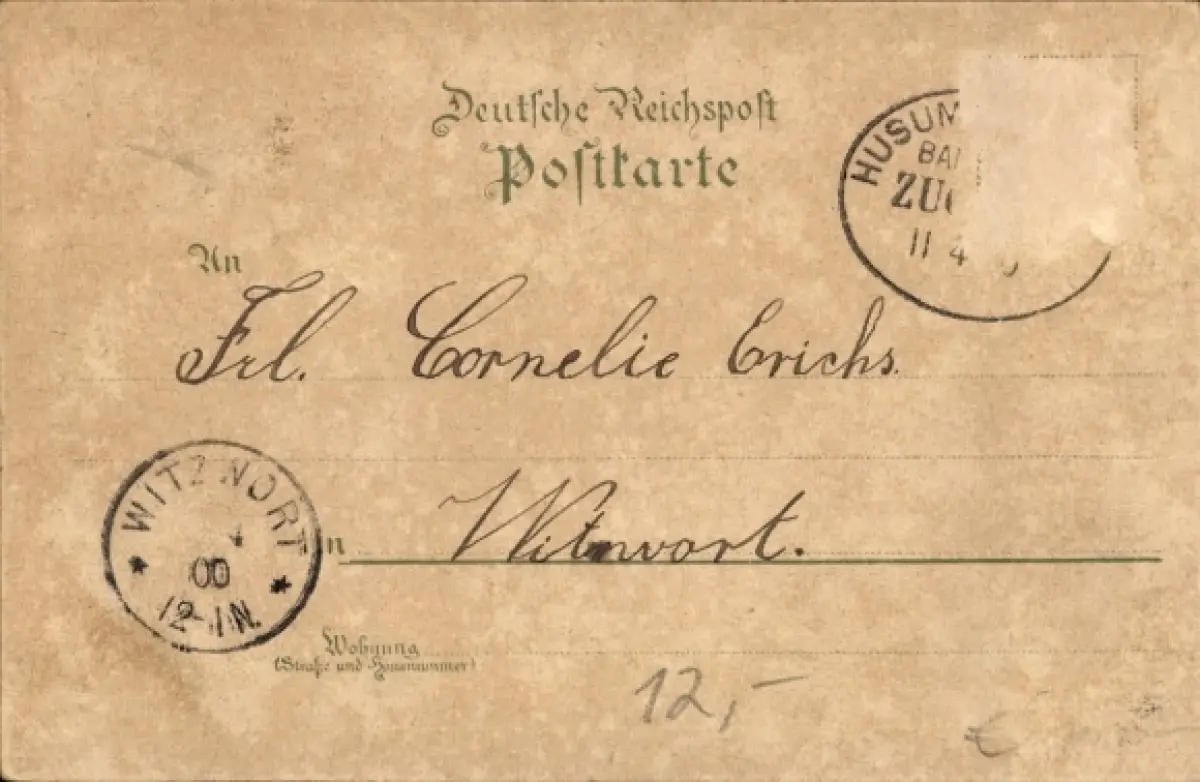 Deutsche Reichspost
Postkarte
HUSUM
BA
ZUG
11 4
An
Frl. Cornelie Erichs.
WITZWORT
00
12-1N.
in Witzwort.
Wohnung
(Straße und Hausnummer)
12,-
€